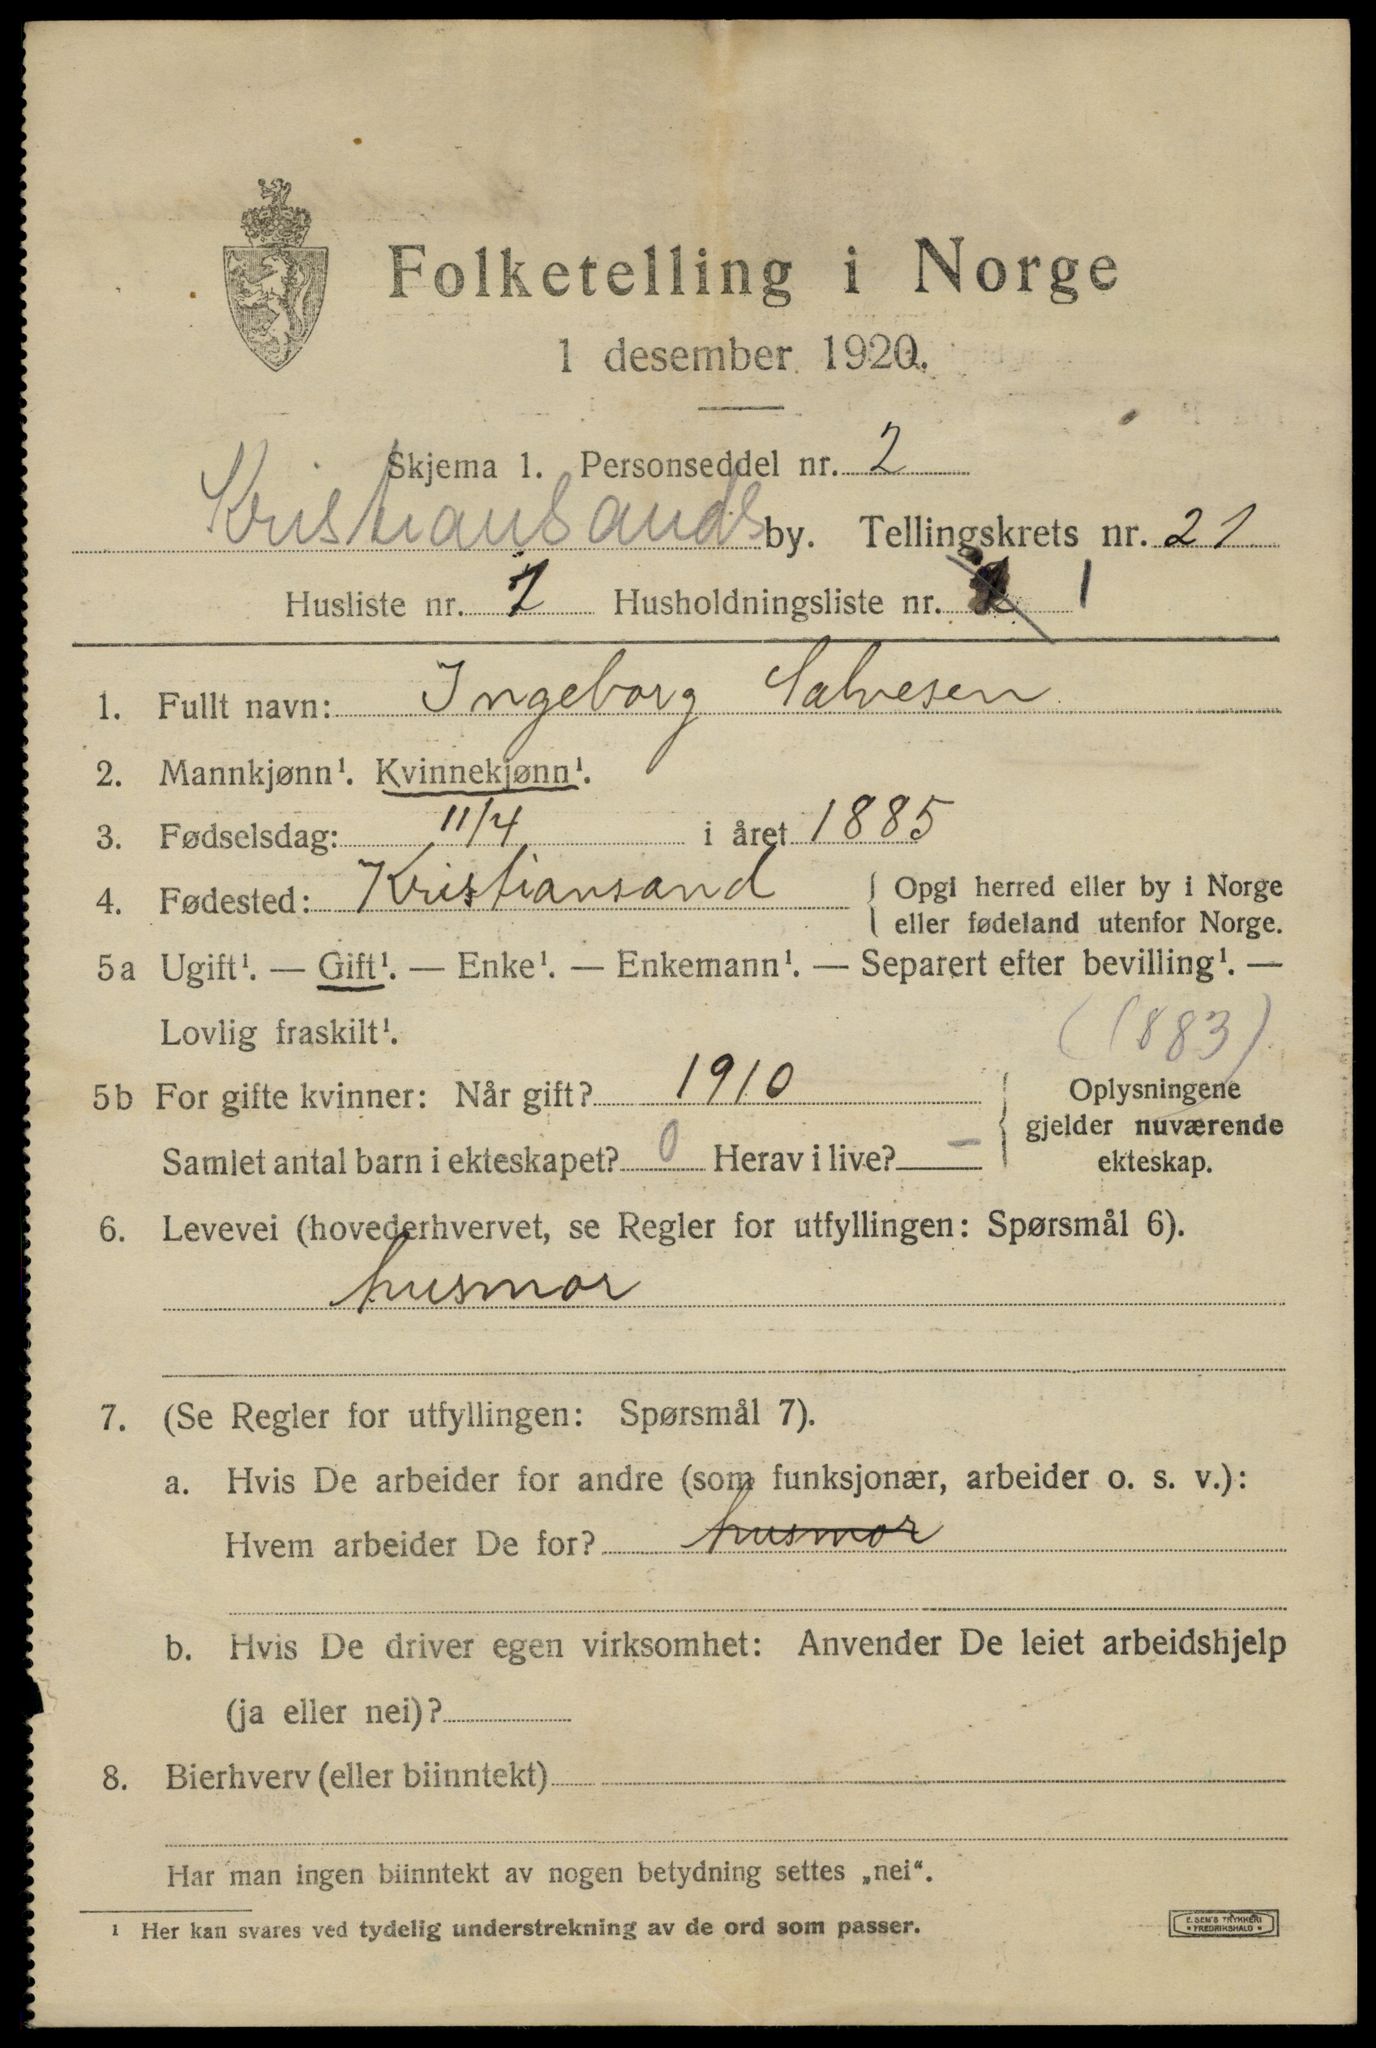 Folketelling i Norge
1 desember 1920.
Skjema 1. Personseddel nr. 2
Kristiansands by. Tellingskrets nr. 21
Husliste nr. 7 Husholdningsliste nr. 1
1. Fullt navn: Ingeborg Salvesen
2. Mannkjønn¹. Kvinnekjønn¹.
3. Fødselsdag: 11/4 i året 1885
4. Fødested: Kristiansand { Opgi herred eller by i Norge
eller fødeland utenfor Norge.
5a Ugift¹. — Gift¹. — Enke¹. — Enkemann¹. — Separert efter bevilling¹. —
Lovlig fraskilt¹.
(1883)
5b For gifte kvinner: Når gift? 1910 { Oplysningene
gjelder nuværende
Samlet antal barn i ekteskapet? 0 Herav i live? — ekteskap.
6. Levevei (hovederhvervet, se Regler for utfyllingen: Spørsmål 6).
husmor
7. (Se Regler for utfyllingen: Spørsmål 7).
a. Hvis De arbeider for andre (som funksjonær, arbeider o. s. v.):
Hvem arbeider De for? husmor
b. Hvis De driver egen virksomhet: Anvender De leiet arbeidshjelp
(ja eller nei)?
8. Bierhverv (eller biinntekt)
Har man ingen biinntekt av nogen betydning settes „nei“.
¹ Her kan svares ved tydelig understrekning av de ord som passer.
TRYKKERI
* FREDRIKSHALD *